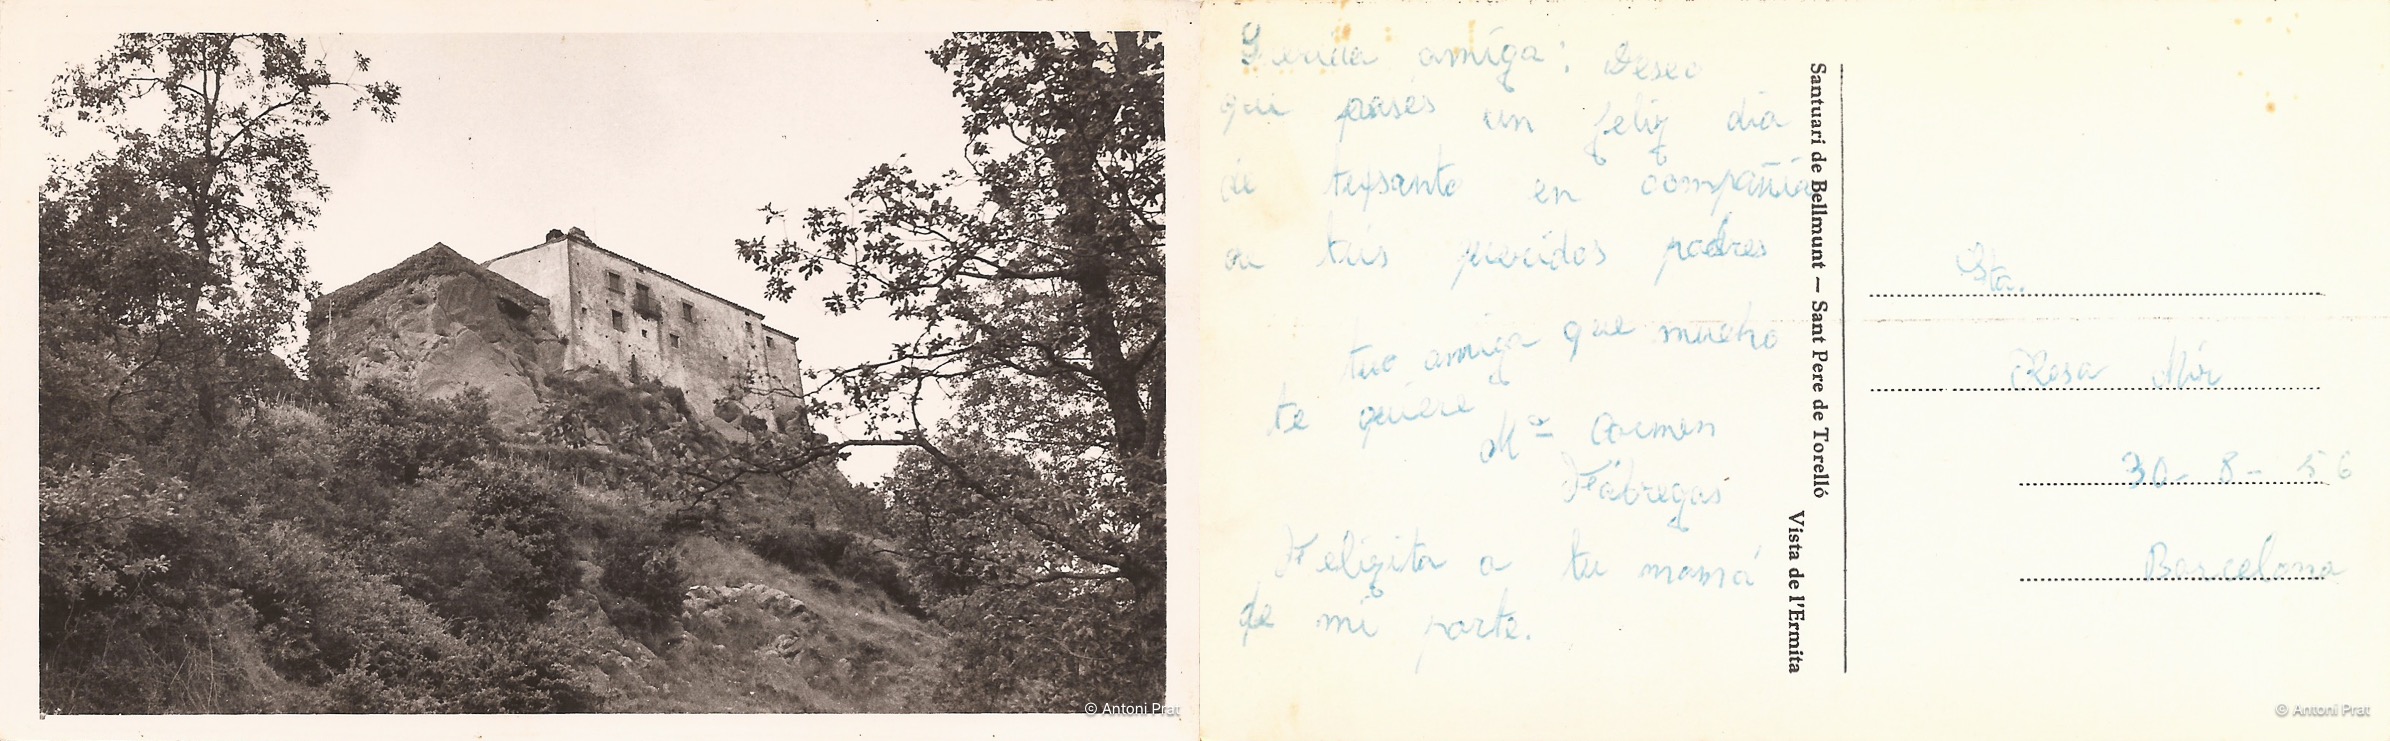 © Antoni Prat
Querida amiga: Deseo
que pases un feliz dia
de tu santo en compañía
de tus queridos padres
tuo amiga que mucho
te quiere
Mª Carmen
Fábregas
Felizita a tu mamá
de mi parte.
Santuari de Bellmunt – Sant Pere de Torelló
Vista de l'Ermita
Sta.
Rosa Mir
30-8-56
Barcelona
© Antoni Prat